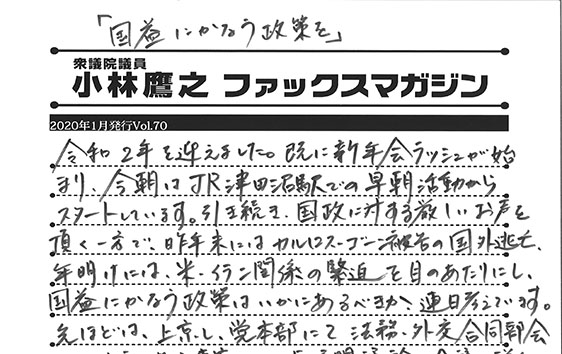 「国益にかなう政策を」
衆議院議員
小林鷹之 ファックスマガジン
2020年1月発行Vol.70
令和2年を迎えました。既に新年会ラッシュが始
まり、今朝はJR津田沼駅での早朝活動から
スタートしています。引き続き、国政に対する厳しいお声を
頂く一方で、昨年末にはカルロスゴーン被告の国外逃亡、
年明けには、米・イラン関係の緊迫を目のあたりにし、
国益にかなう政策はいかにあるべきか、連日考えています。
先ほどは、上京し、党本部にて法務、外交合同部会